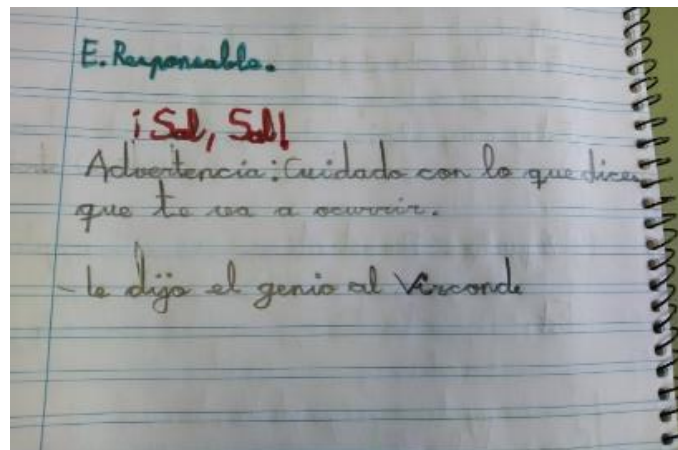 E. Responsable.
¡Sal, Sal!
Advertencia: Cuidado con lo que dices
que te va a ocurrir.
- le dijo el genio al Vizconde